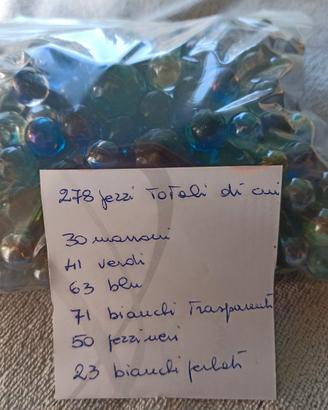 278 pezzi Totali di cui
30 marroni
41 verdi
63 blu
71 bianchi Trasparenti
50 pezzi neri
23 bianchi perlati